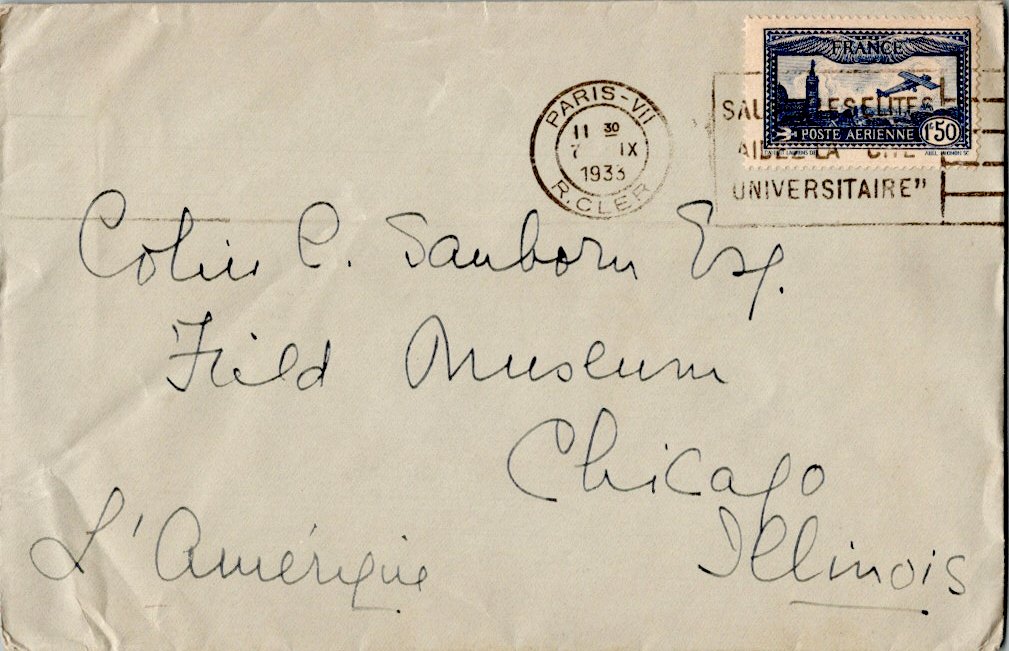 FRANCE
POSTE AÉRIENNE 1F50
PARIS-VII
11 30
7 IX
1933
R. CLER
SAU ES ELITES
AIDEZ LA "CITE
UNIVERSITAIRE"
Colin C. Sanborn Esq.
Field Museum
Chicago
L'Amérique Illinois